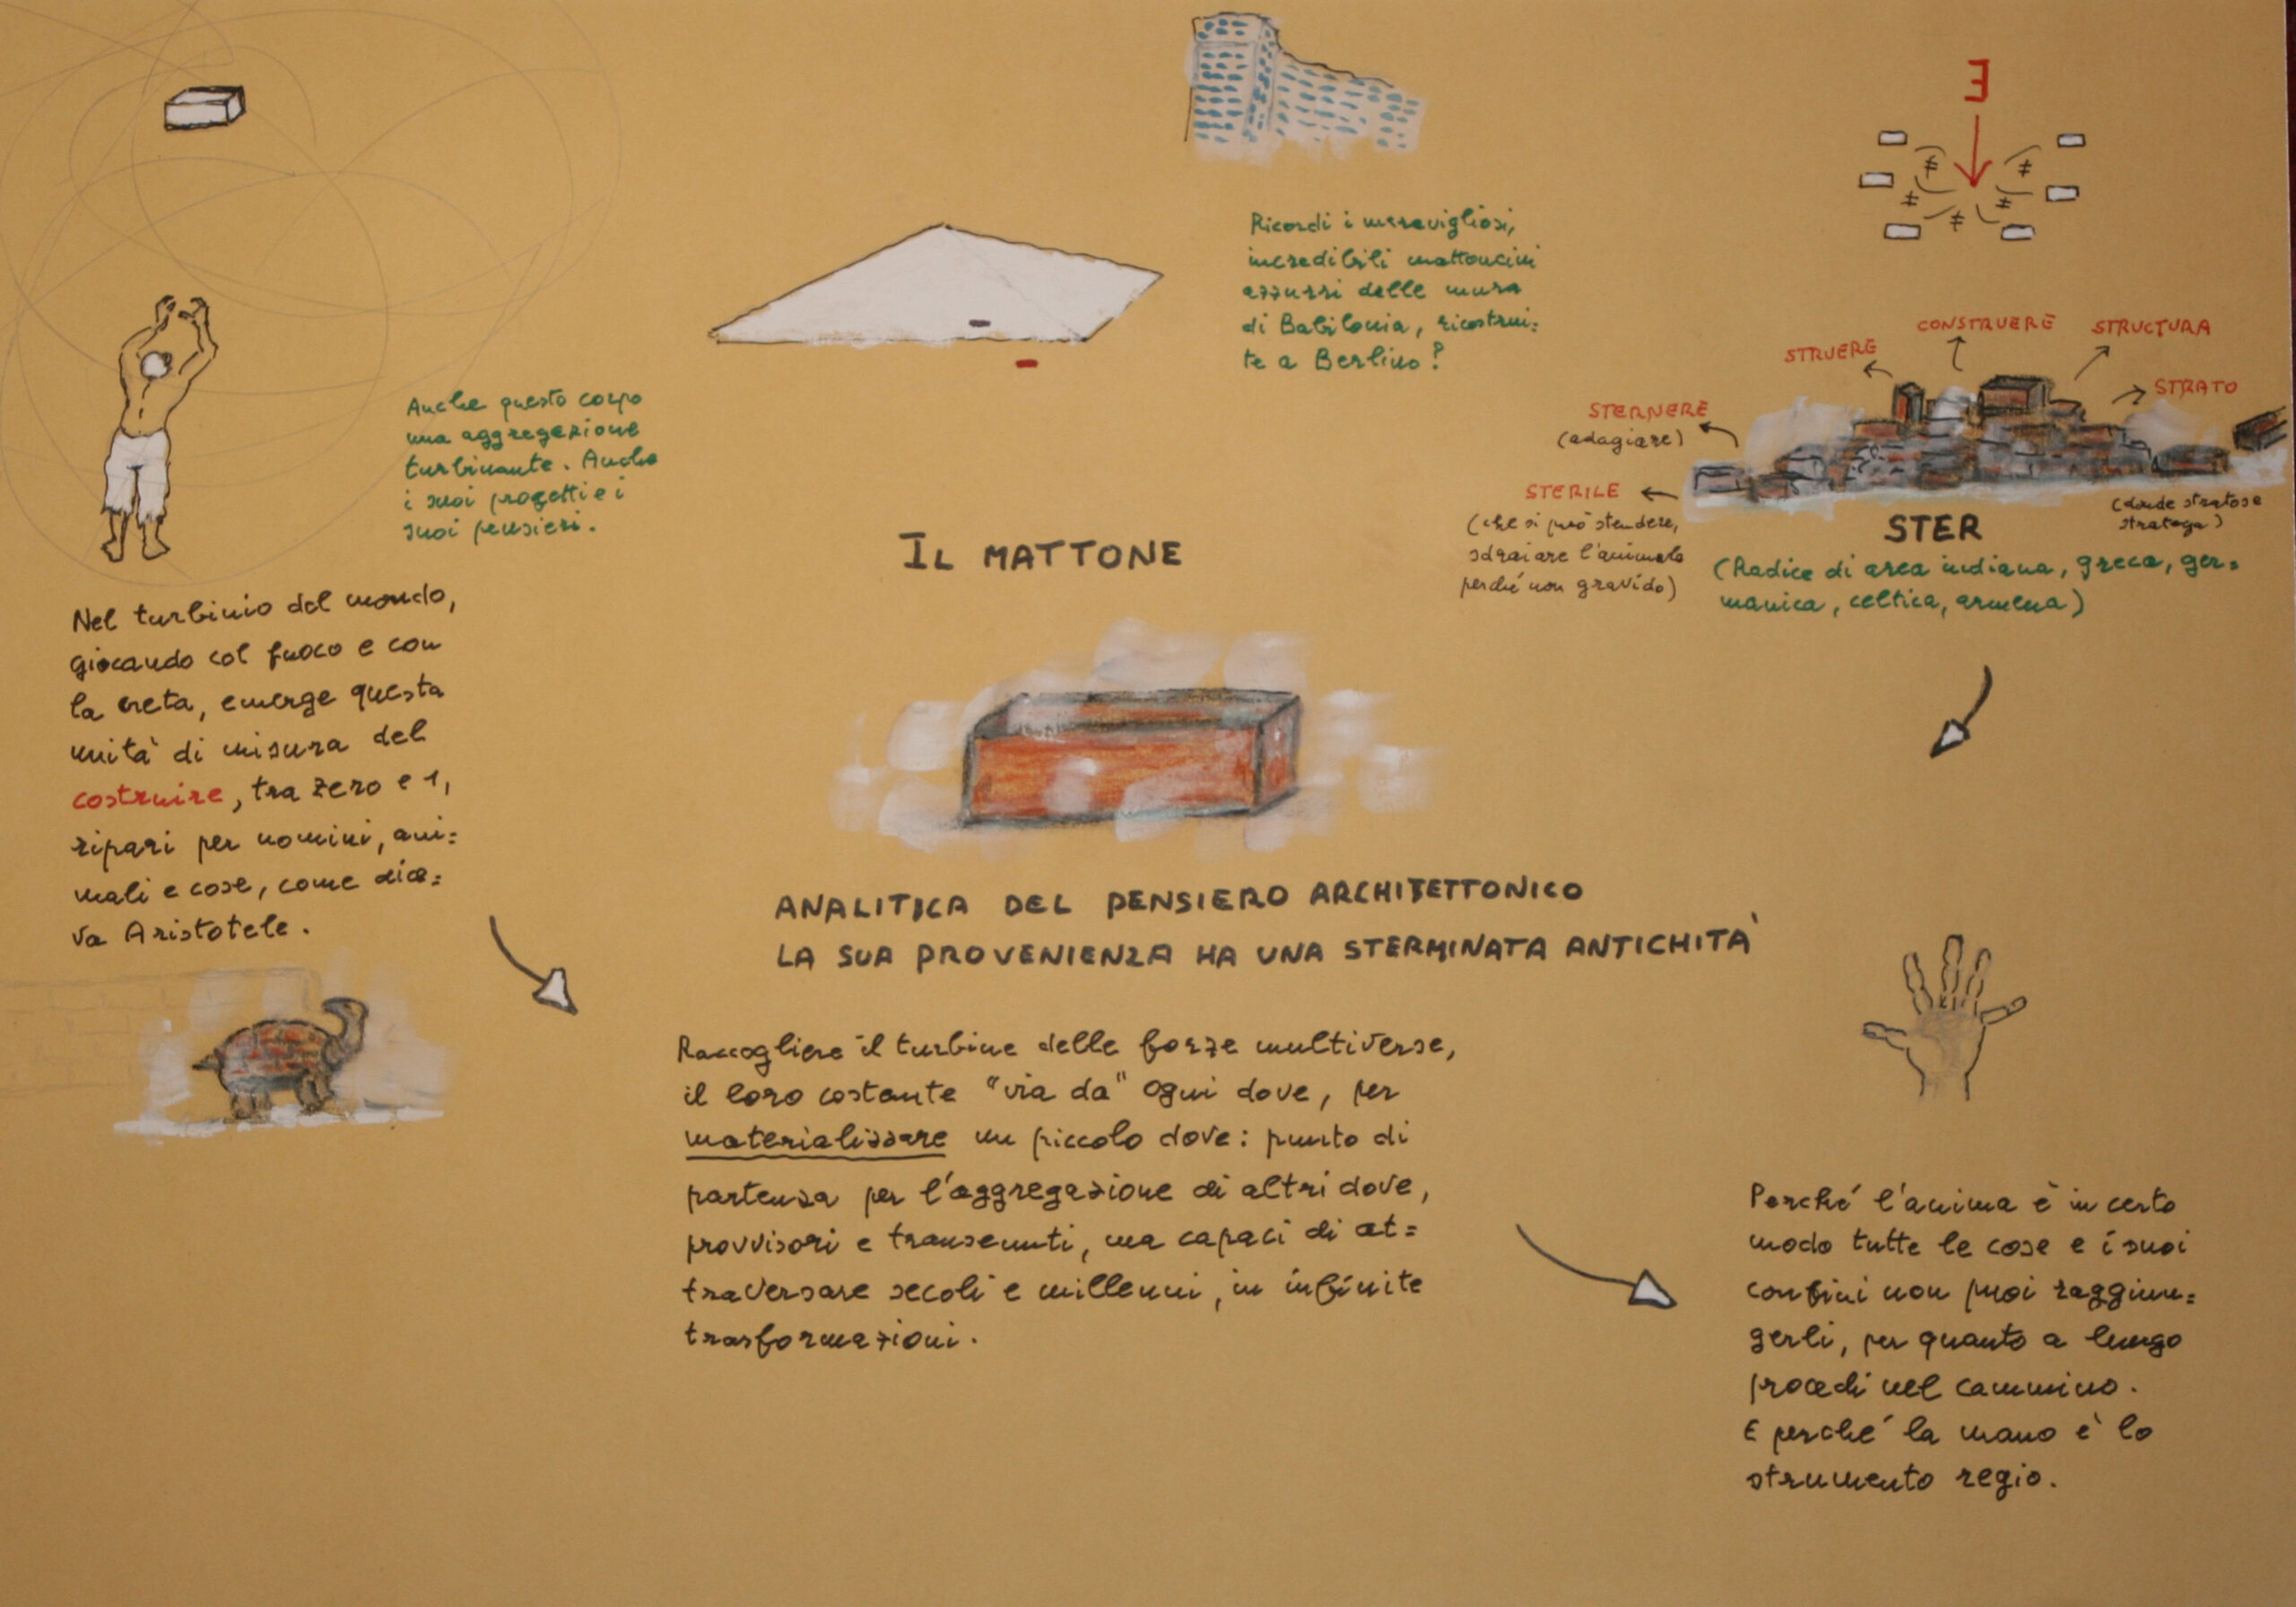 Anche questo corpo
una aggregazione
turbinante. Anche
i suoi progetti e i
suoi pensieri.
Nel turbinio del mondo,
giocando col fuoco e con
la creta, emerge questa
unità di misura del
costruire, tra zero e 1,
ripari per uomini, ani=
mali e cose, come dice=
va Aristotele.
Ricordi i meravigliosi,
incredibili mattoncini
azzurri delle mura
di Babilonia, ricostrui=
te a Berlino?
IL MATTONE
ANALITICA DEL PENSIERO ARCHITETTONICO
LA SUA PROVENIENZA HA UNA STERMINATA ANTICHITÀ
Raccogliere il turbine delle forze multiverse,
il loro costante "via da" ogni dove, per
materializzare un piccolo dove: punto di
partenza per l'aggregazione di altri dove,
provvisori e transeunti, ma capaci di at=
traversare secoli e millenni, in infinite
trasformazioni.
E
≠ ≠
≠ ≠
≠
STRUERE
CONSTRUERE
STRUCTURA
STRATO
STERNERE
(adagiare)
STERILE
(che si può stendere,
sdraiare l'animale
perché non gravido)
(donde stratos e
stratega)
STER
(Radice di area indiana, greca, ger=
manica, celtica, armena)
Perché l'anima è in certo
modo tutte le cose e i suoi
confini non puoi raggiun=
gerli, per quanto a lungo
procedi nel cammino.
E perché la mano è lo
strumento regio.